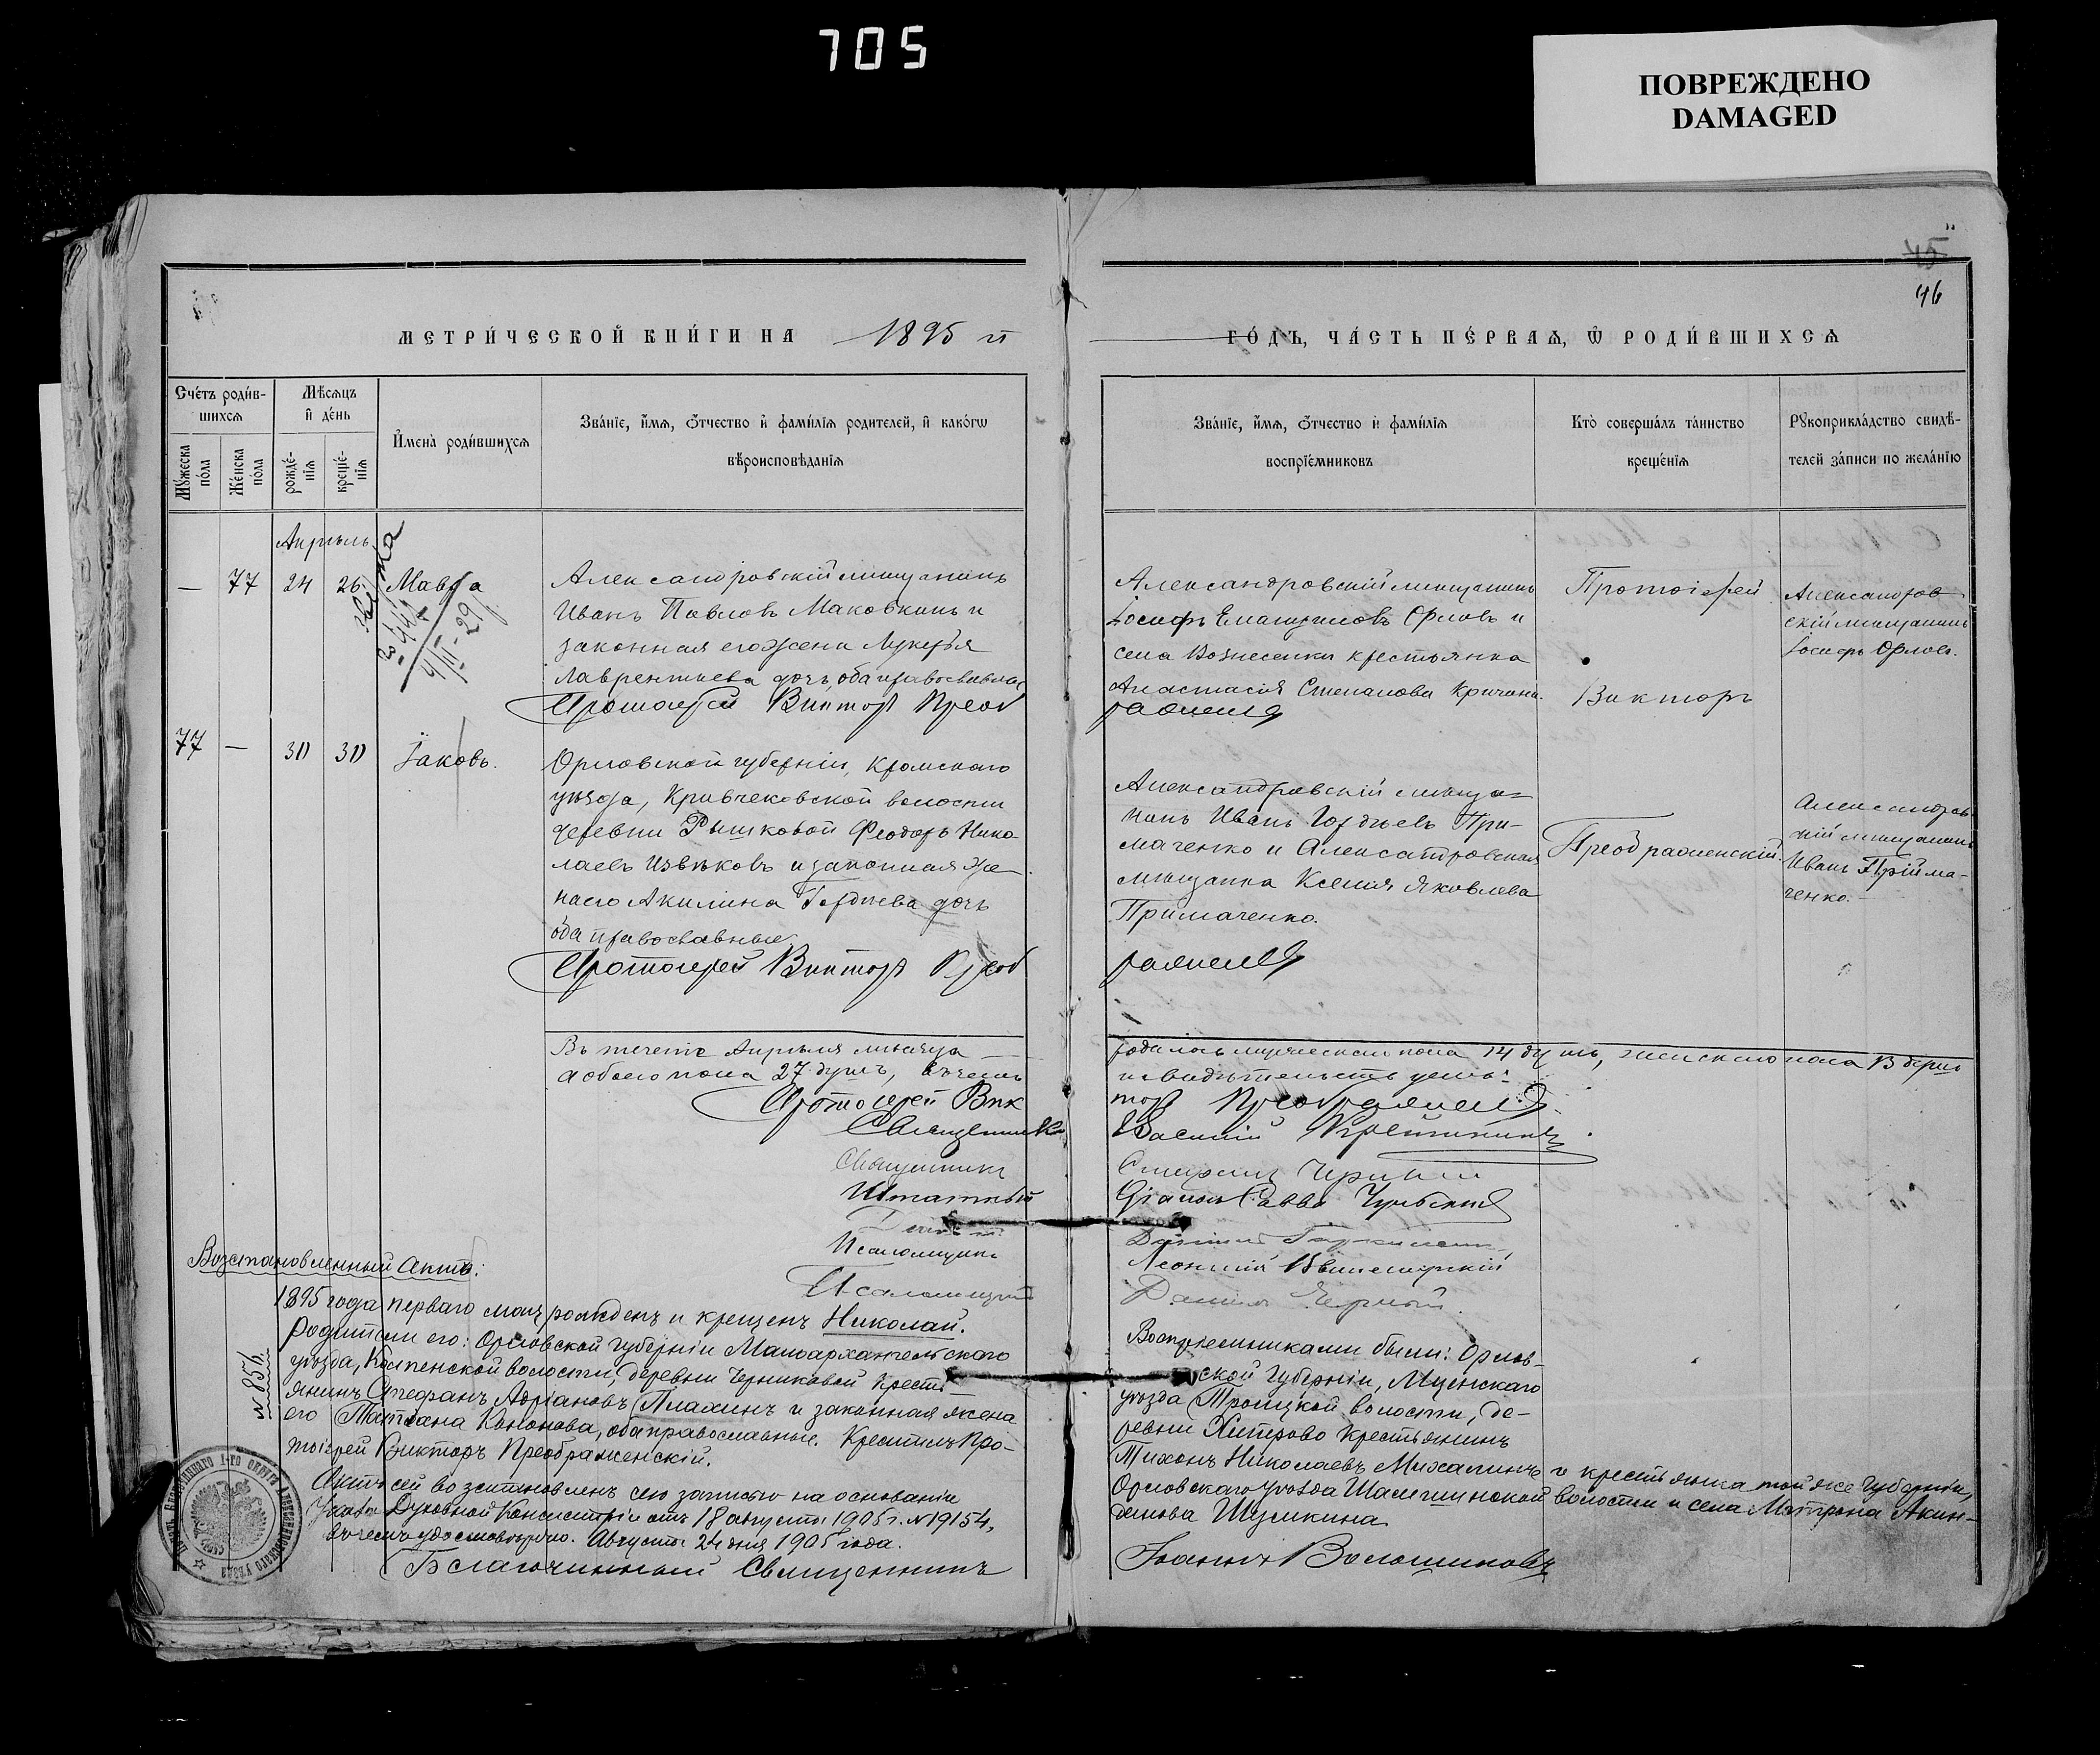 705
ПОВРЕЖДЕНО
DAMAGED
45
46
МЕТРИ́ЧЕСКОЙ КНИ́ГИ НА 1895 й
ГО́ДЪ, ЧА́СТЬ ПЕ́РВАѦ, Ѿ РОДИ́ВШИХСѦ
Сче́тъ роди́в-
шихсѧ
Мѣ́сѧцъ
и҆ де́нь
И҆мена̀ роди́вшихсѧ
Зва́нїе, и҆́мѧ, ѻ҆́тчество и҆ фами́лїѧ роди́телей, и҆ како́гѡ
вѣроисповѣ́данїѧ
Мꙋ́жеска
по́ла
Же́нска
по́ла
рожде́-
нїѧ
креще́-
нїѧ
Зва́нїе, и҆́мѧ, ѻ҆́тчество и҆ фами́лїѧ
воспрїе́мниковъ
Кто̀ соверша́лъ та́инство
креще́нїѧ
Рꙋкоприкла́дство свидѣ́-
телей за́писи по жела́нїю
Апрѣль
— 77 24 26 Мавра
Александровскій мѣщанинъ
Иванъ Павловъ Маковкинъ и
законная его жена Лукерья
Лаврентьева дочь, оба православные
Протоіерей Викторъ Преоб
Александровскій мѣщанинъ
Іосифъ Орловъ и
села Вознесенки крестьянка
Анастасія Степанова
раженскій
Протоіерей
Викторъ
Александров-
скій мѣщанинъ
Іосифъ Орловъ.
77 — 30 30 Іаковъ.
Орловской губерніи, Кромскаго
уѣзда, Кривчековской волости
деревни Рышковой Феодоръ Нико-
лаевъ Извѣковъ и законная же-
на его Акилина Гордѣева дочь
оба православные
Протоіерей Викторъ Преоб
Александровскій мѣща-
нинъ Иванъ Гордѣевъ При-
маченко и Александровская
мѣщанка Ксенія Яковлева
Примаченко.
раженскій
Преображенскій.
Александров-
скій мѣщанинъ
Иванъ Прійма-
ченко.
Въ теченіе Апрѣля мѣсяца
родилось мужеска пола 14 душъ, женскаго пола 13 душъ
а обоего пола 27 душъ, въ чемъ
и свидѣтельствуемъ:
Протоіерей Вик
торъ Преображенскій.
Священник
Василій
Священникъ
Черный
Штатный
Діаконъ Савва
Псаломщикъ
Леонтій
Псаломщикъ
Даніилъ Черный.
Возстановленный актъ:
№ 851.
1895 года перваго мая рожденъ и крещенъ Николай.
Родители его: Орловской губерніи Малоархангельскаго
уѣзда, Колпенской волости, деревни Черниковой кресть-
янинъ Стефанъ Адріановъ Плахинъ и законная жена
его Татіана Кононова, оба православные. Крестилъ Про-
тоіерей Викторъ Преображенскій.
Воспріемниками были: Орлов-
ской губерніи, Мценскаго
уѣзда Троицкой волости, де-
ревни Хитрово крестьянинъ
Тихонъ Николаевъ Михалинъ и крестьянка той же губерніи,
Орловскаго уѣзда волости и села Матрона Акин-
Шумкина
Актъ сей возстановленъ сею записью на основаніи
Указа Духовной Консисторіи отъ 18 августа 1905 г. №19154,
въ чемъ удостовѣряю. Августа 24 дня 1905 года.
Благочинный Священникъ
Іоаннъ Волошиновъ